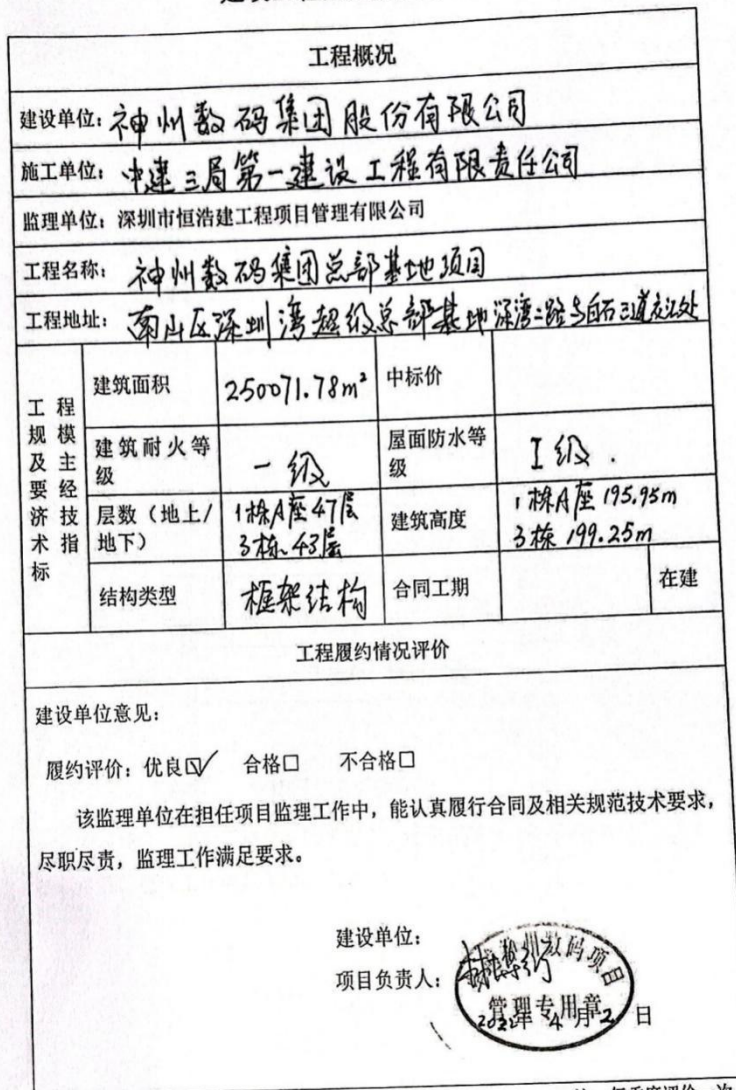 工程概况
建设单位：神州数码集团股份有限公司
施工单位：中建三局第一建设工程有限责任公司
监理单位：深圳市恒浩建工程项目管理有限公司
工程名称：神州数码集团总部基地项目
工程地址：南山区深圳湾超级总部基地深湾二路与白石三道交汇处
工程规模及主要经济技术指标
建筑面积 250071.78m² 中标价
建筑耐火等级 一级 屋面防水等级 I级.
层数（地上/地下） 1栋A座47层 3栋43层 建筑高度 1栋A座195.95m 3栋199.25m
结构类型 框架结构 合同工期 在建
工程履约情况评价
建设单位意见：
履约评价：优良☑ 合格□ 不合格□
该监理单位在担任项目监理工作中，能认真履行合同及相关规范技术要求，
尽职尽责，监理工作满足要求。
建设单位：
项目负责人：
神州数码项目
管理专用章
2022年4月2日
每季度评价一次